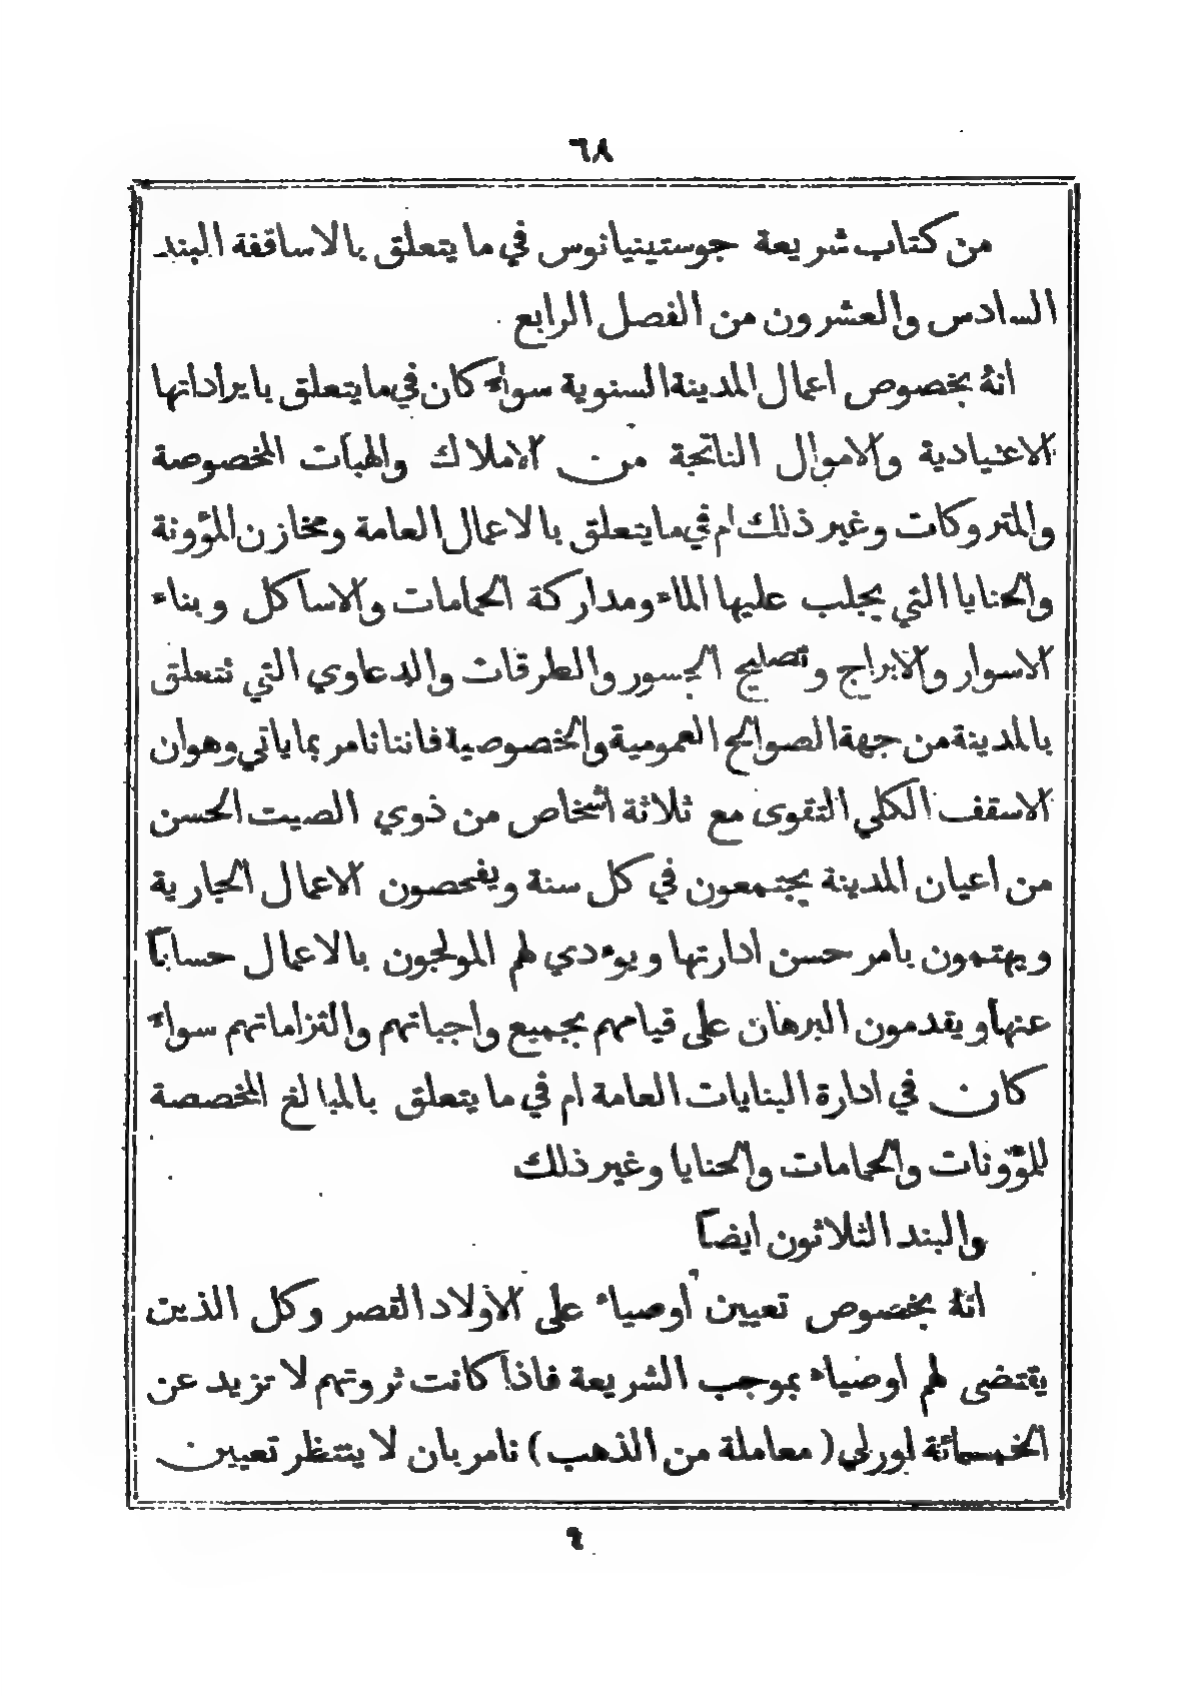 ٦٨
من كتاب شريعة جوستينيانوس في ما يتعلق بالاساقفة البند
السادس والعشرون من الفصل الرابع
انهُ بخصوص اعمال المدينة السنوية سواءً كان في ما يتعلق بايراداتها
الاعتيادية والاموال الناتجة من الاملاك والهبات المخصوصة
والمتروكات وغير ذلك ام في ما يتعلق بالاعمال العامة ومخازن المؤونة
والحنايا التي يجلب عليها الماء ومداركة الحمامات والاساكل وبناء
الاسوار والابراج وتصليح الجسور والطرقات والدعاوي التي تتعلق
بالمدينة من جهة الصوالح العمومية والخصوصية فاننا نامر بما ياتي وهو ان
الاسقف الكلي التقوى مع ثلاثة اشخاص من ذوي الصيت الحسن
من اعيان المدينة يجتمعون في كل سنة ويفحصون الاعمال الجارية
ويهتمون بامر حسن ادارتها ويوءدي لهم المولجون بالاعمال حساباً
عنها ويقدمون البرهان على قيامهم بجميع واجباتهم والتزاماتهم سواءً
كان في ادارة البنايات العامة ام في ما يتعلق بالمبالغ المخصصة
للمؤونات والحمامات والحنايا وغير ذلك
والبند الثلاثون ايضاً
انهُ بخصوص تعيين اوصياء على الاولاد القصر وكل الذين
يقتضى لهم اوصياء بموجب الشريعة فاذا كانت ثروتهم لا تزيد عن
الخمسمائة لورلي (معاملة من الذهب) نامر بان لا ينتظر تعيين
٩